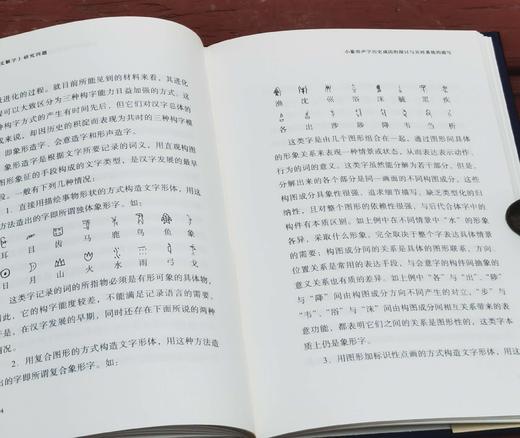 文解字》研究问题
进化的过程。就目前所能见到的材料来看，其进化
可以大致区分为三种构字能力日益加强的方式。
种构字方式的产生有时间先后，但它们对汉字总体的
来说，却因历史的积淀而表现为共时的三种构字模
即象形造字、会意造字和形声造字。
象形造字是根据文字所要记录的词义，用直观构图
图形象征的手段构成的文字类型，汉字发展的最早
段。一般有下列几种情况：
1．直接用描绘事物形状的方式构造文字形体，用这
方法造出的字即所谓独体象形字。如：
耳 目 齿 马 鹿 鸟 鱼 象
日 月 山 火 水 雨 弓 戈
这类字记录的词的所指物必须是有形可象的具体物，
因此，它的构字能度较差，不能满足记录语言的需要。
于是，在汉字发展的早期，同时还存在下面所说的两种
情况。
2．用复合图形的方式构造文字形体，用这种方法造
出的字即所谓复合象形字。如：
4
小篆形声字历史成因的探讨与共时系统的描写
渔 沈 张 浴 沫 毓 罴 疾
各 出 涉 陟 降 韦 刍 析
这类字是由几个图形组合在一起，通过图形间具体
的形象关系来表现一种情景或状态，从而表达表示动作、
行为的词的意义。这类字虽然能分解为若干部分，但是，
分解出来的各个部分是同一画面的不同构图成分。这些
构图成分具象性很强，追求细节描写，缺乏类型化的归
纳性，且对整个图形的依赖性很强，与后代合体字中的
构件有本质区别。如上例中在不同情景中“水”的形象
各异，采取什么形象，完全取决于整个字表达具体情景
的需要；构图成分间的关系是具体的图形联系，方向、
位置关系是常用的表达手段，与会意字的构件间抽象的
意义关系也有质的差异。如上例中“各”与“出”、“陟”
与“降”间由构图成分方向不同产生的对立，“步”与
“韦”、“浴”与“沫”间由构图成分间相互关系带来的表
意功能，都表明它们之间的关系是图形性的，这类字本
质上仍是象形字。
3．用图形加标识性点画的方式构造文字形体，用这